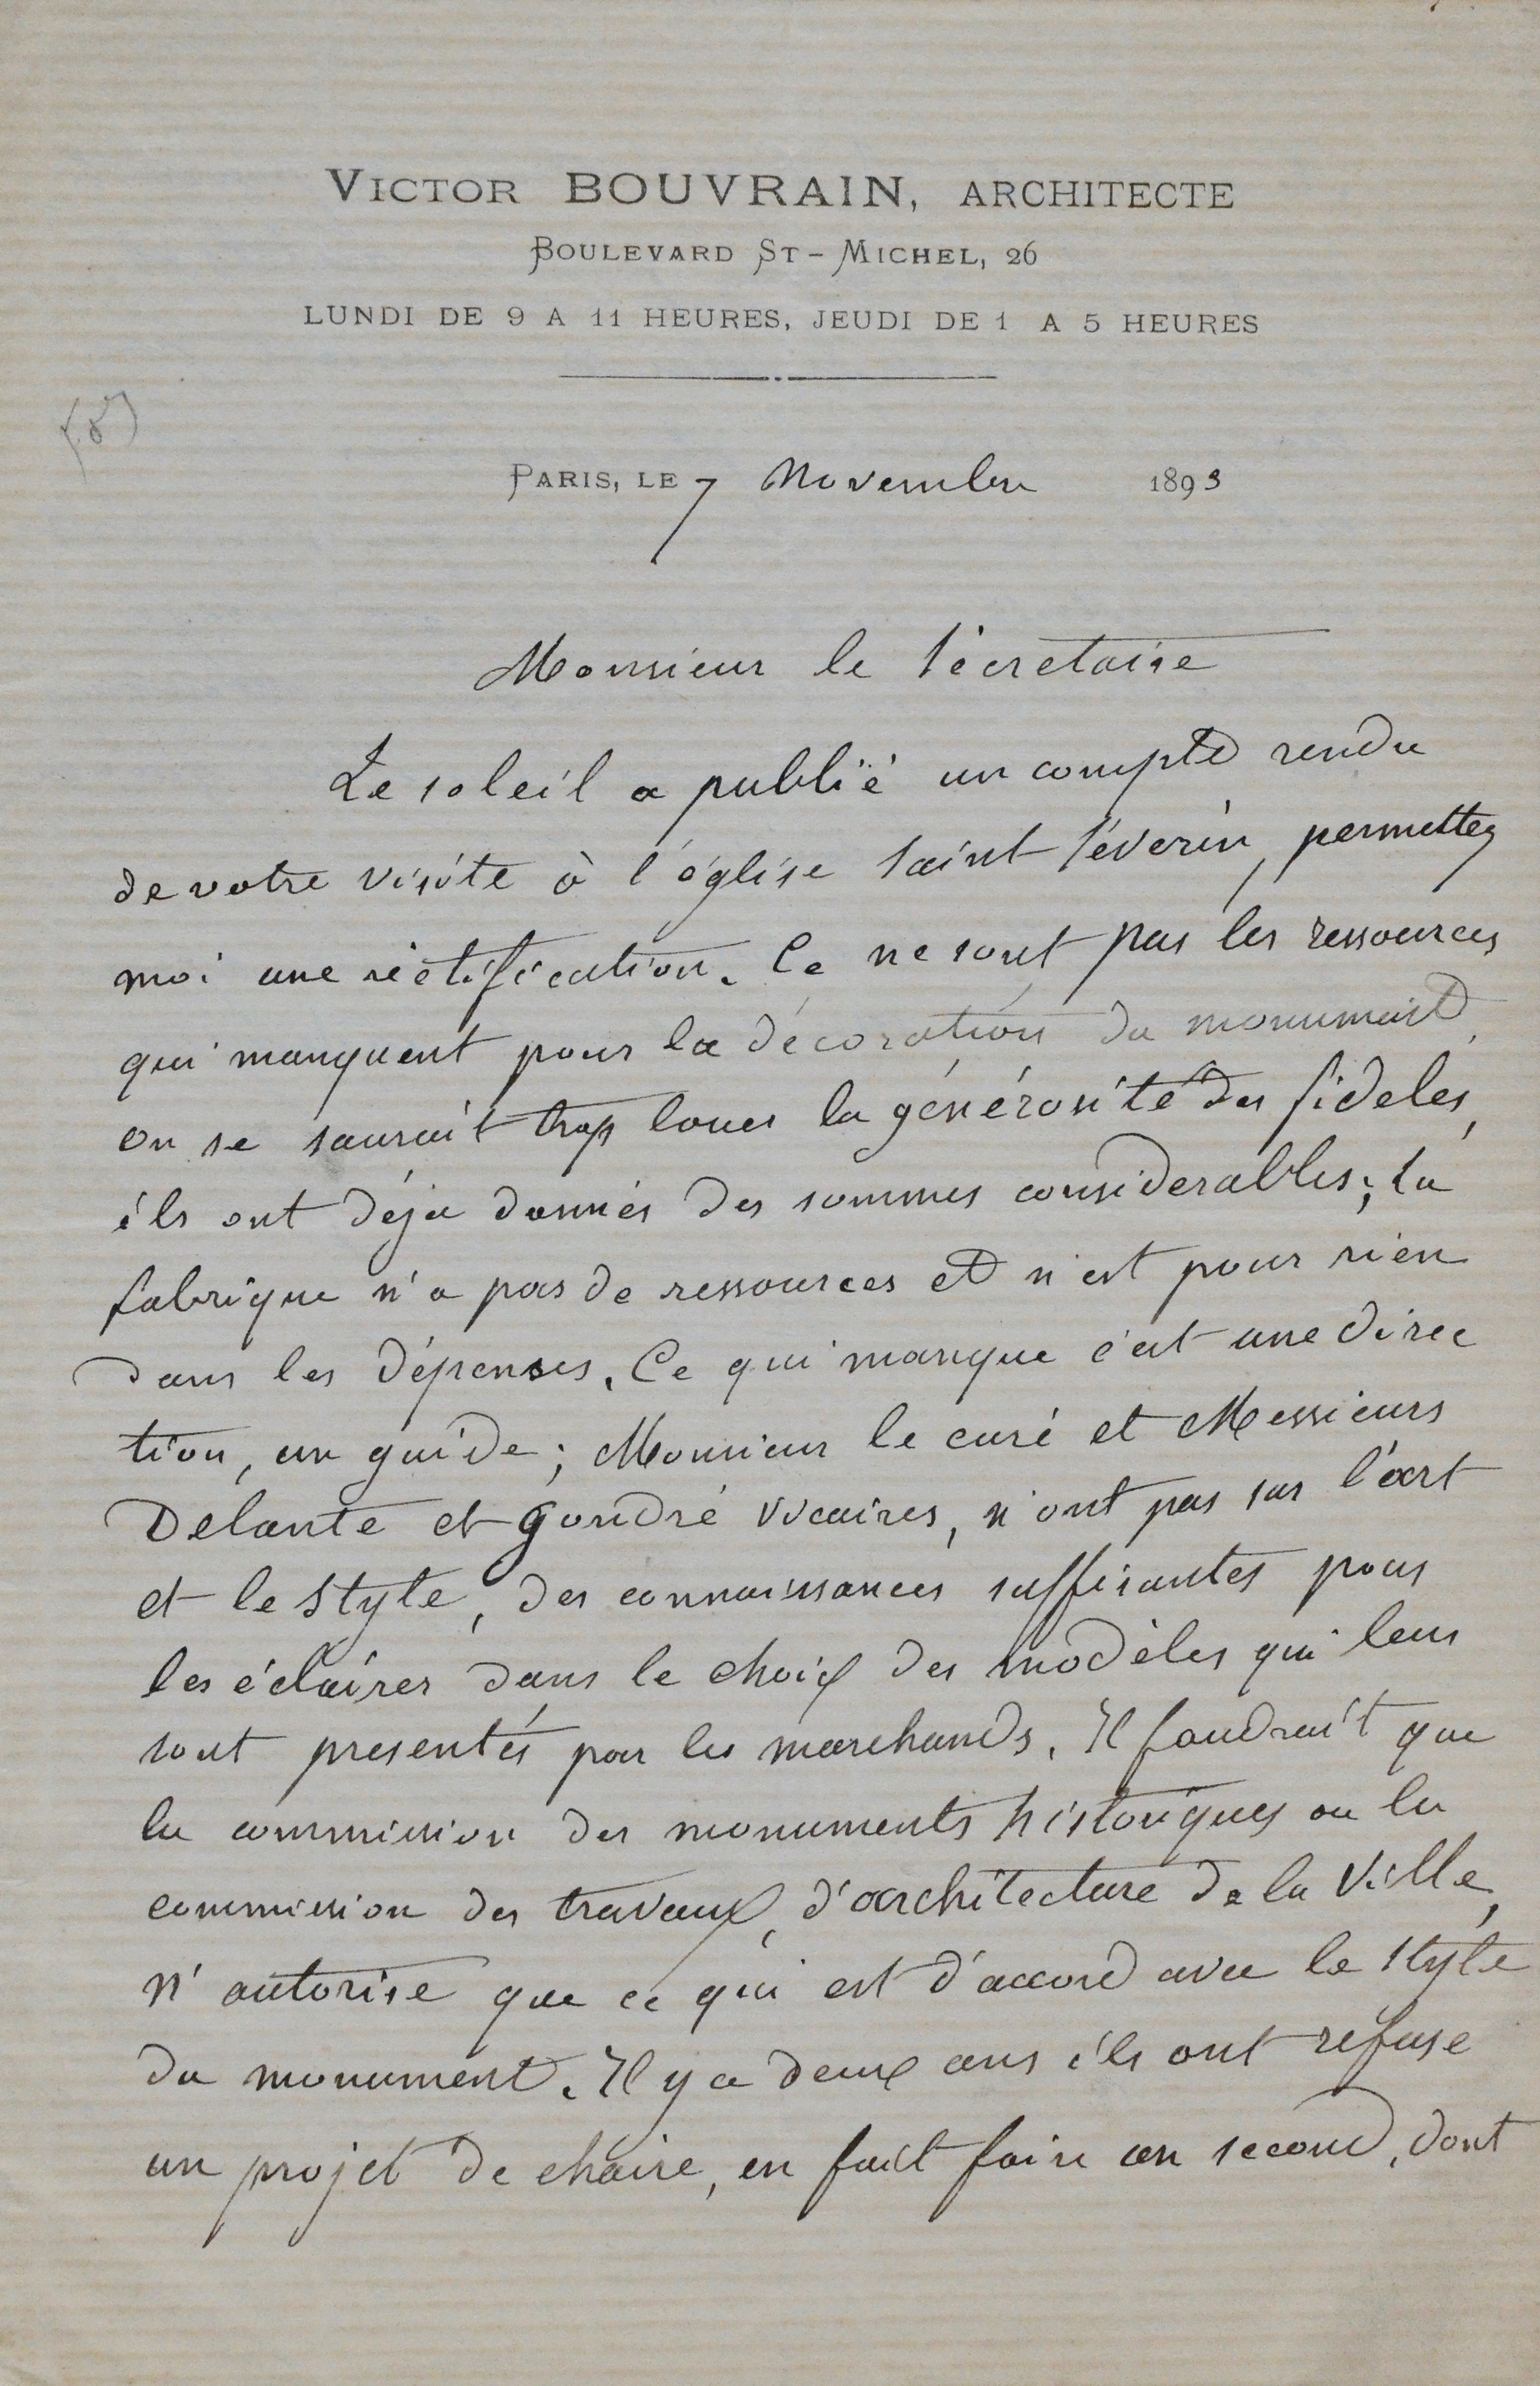 VICTOR BOUVRAIN, ARCHITECTE
BOULEVARD ST-MICHEL, 26
LUNDI DE 9 A 11 HEURES, JEUDI DE 1 A 5 HEURES
PARIS, LE 7 Novembre 1893
Monsieur le Sécretaire
Le soleil a publié un compte rendu
de votre visite à l'église Saint Séverin, permettez
moi une réctification. Ce ne sont pas les ressources
qui manquent pour la décoration du monument,
on se saurait trop louer la générosité des fideles,
ils ont déja donnés des sommes considerables; la
fabrique n'a pas de ressources et n'est pour rien
dans les dépenses. Ce qui manque c'est une direc
tion, un guide; Monsieur le curé et Messieurs
Delante et Gondré vicaires, n'ont pas sur l'art
et le style, des connaissances suffisantes pour
les éclairer dans le choix des modèles qui leur
sont presentés par les marchands. Il faudrait que
la commission des monuments historiques ou la
commission des travaux d'architecture de la Ville,
n'autorise que ce qui est d'accord avec le style
du monument. Il y a deux ans ils ont refuse
un projet de chaire, en fait faire un second, dont